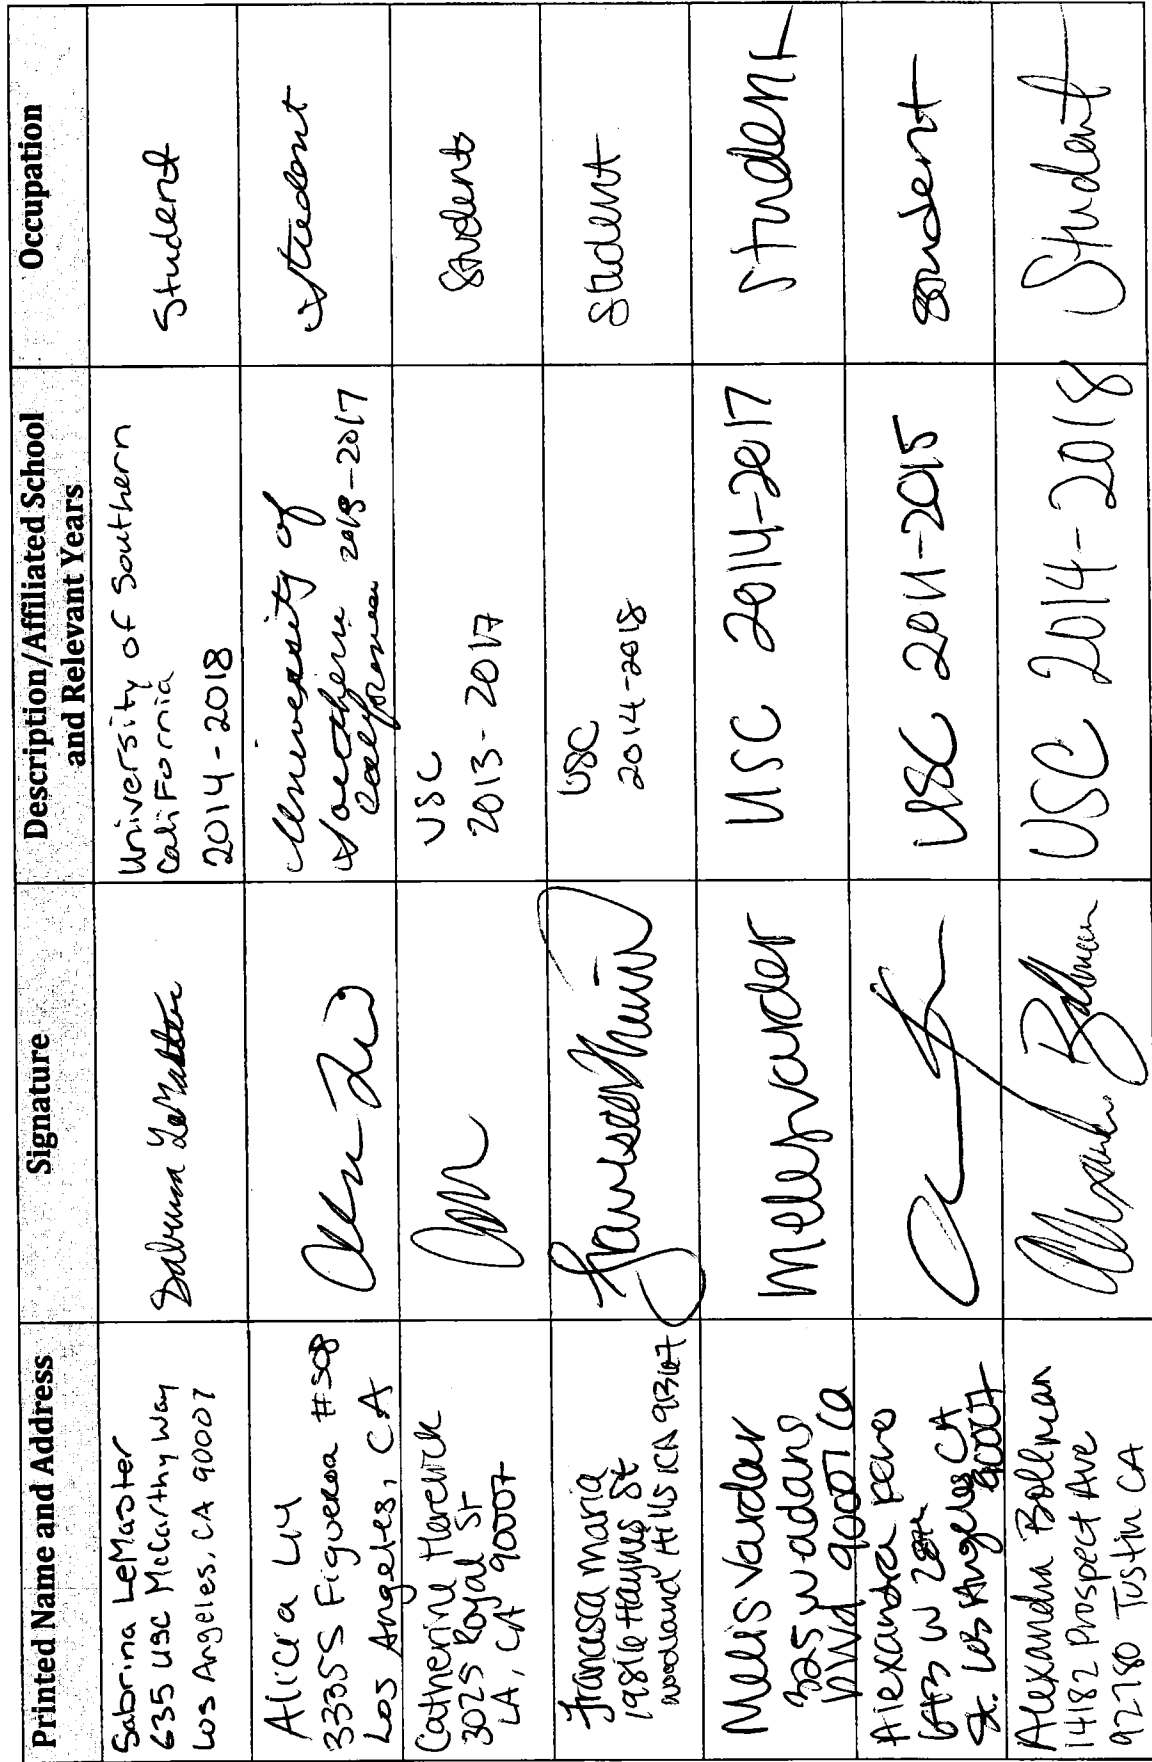 Printed Name and Address
Signature
Description/Affiliated School
and Relevant Years
Occupation
Sabrina LeMaster
635 USC McCarthy Way
Los Angeles, CA 90007
Sabrina LeMaster
University of Southern
California
2014-2018
Student
Alicia
3335 S Figueroa #508
Los Angeles, CA
University of
Southern 2013-2017
California
Student
Catherine
3025 Royal St
LA, CA 90007
USC
2013-2017
Student
Francesca Maria
19816 Haynes St
Woodland Hills, CA 91367
USC
2014-2018
Student
Melis Vardar
325 W adams
blvd 90007 Ca
melisvardar
USC 2014-2017
Student
Alexandra
W 28th
St. Los Angeles CA
90007
USC 2011-2015
Student
Alexandra Bollman
14182 Prospect Ave
92780 Tustin CA
Alexandra Bollman
USC 2014-2018
Student